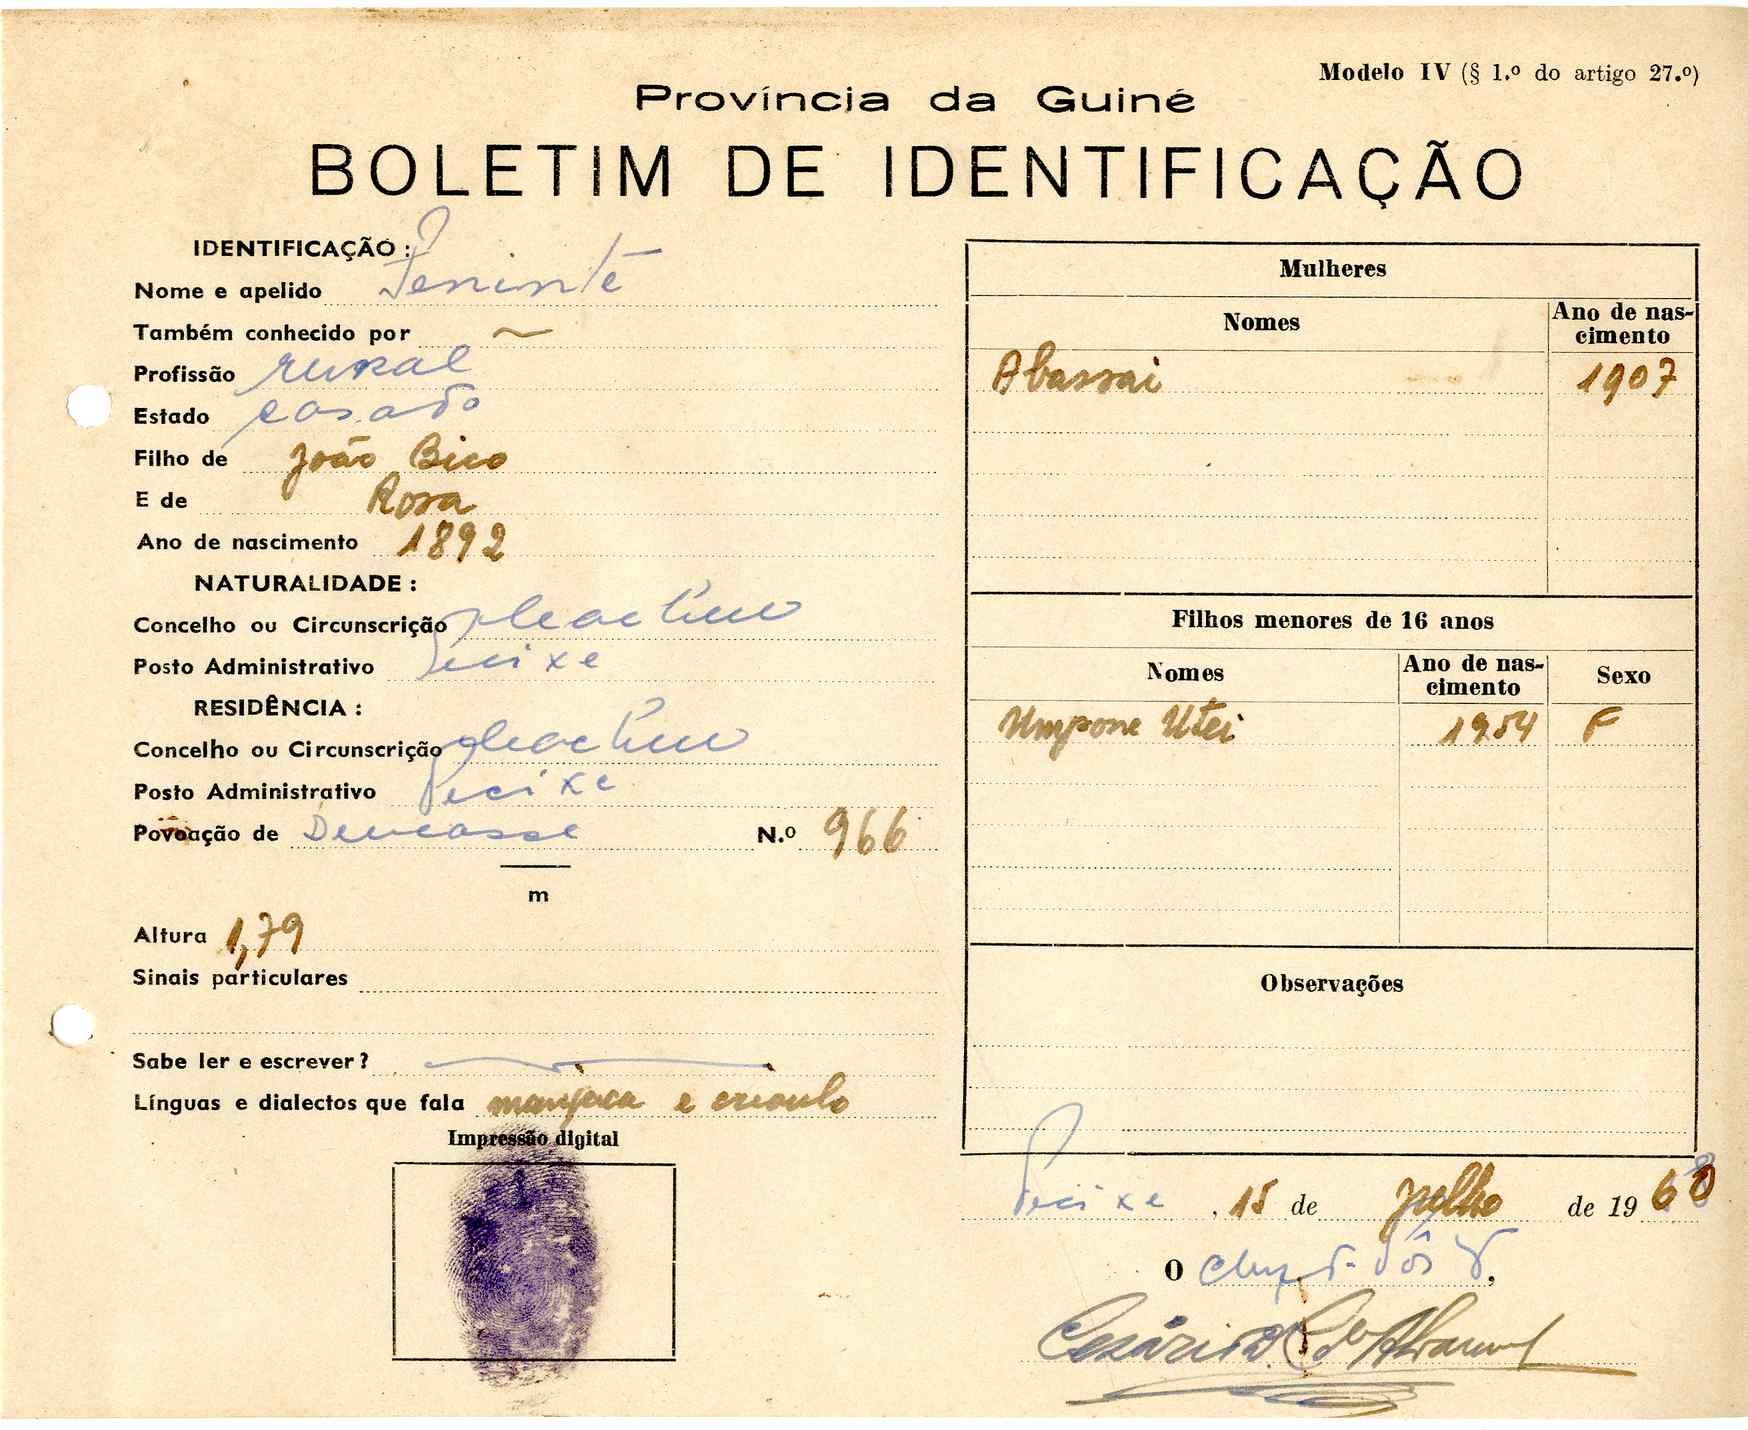 Modelo IV (§ 1.º do artigo 27.º)
Província da Guiné
BOLETIM DE IDENTIFICAÇÃO
IDENTIFICAÇÃO:
Nome e apelido
Também conhecido por ~
Profissão rural
Estado casado
Filho de João Bico
E de Rosa
Ano de nascimento 1892
NATURALIDADE:
Concelho ou Circunscrição
Posto Administrativo Pecixe
RESIDÊNCIA:
Concelho ou Circunscrição
Posto Administrativo Pecixe
Povoação de N.º 966
m
Altura 1,79
Sinais particulares
Sabe ler e escrever?
Línguas e dialectos que fala manjaca e crioulo
Impressão digital
Mulheres
Nomes Ano de nas-
cimento
Abassai 1907
Filhos menores de 16 anos
Nomes Ano de nas-
cimento Sexo
Umpone Utei 1954 F
Observações
Pecixe, 15 de julho de 1960
O